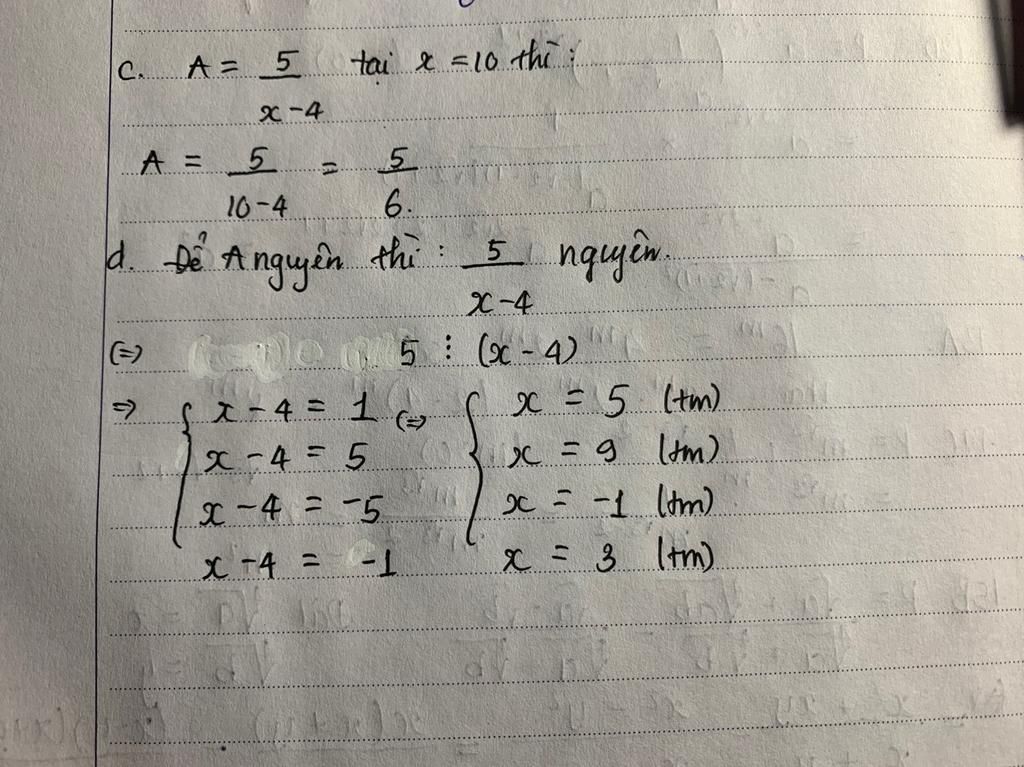 c. A = 5/(x-4) tại x = 10 thì:
A = 5/(10-4) = 5/6.
d. Để A nguyên thì: 5/(x-4) nguyên.
(=) 5 ⋮ (x-4)
=> { x-4 = 1 (=) { x = 5 (tm)
x-4 = 5 x = 9 (tm)
x-4 = -5 x = -1 (tm)
x-4 = -1 x = 3 (tm)